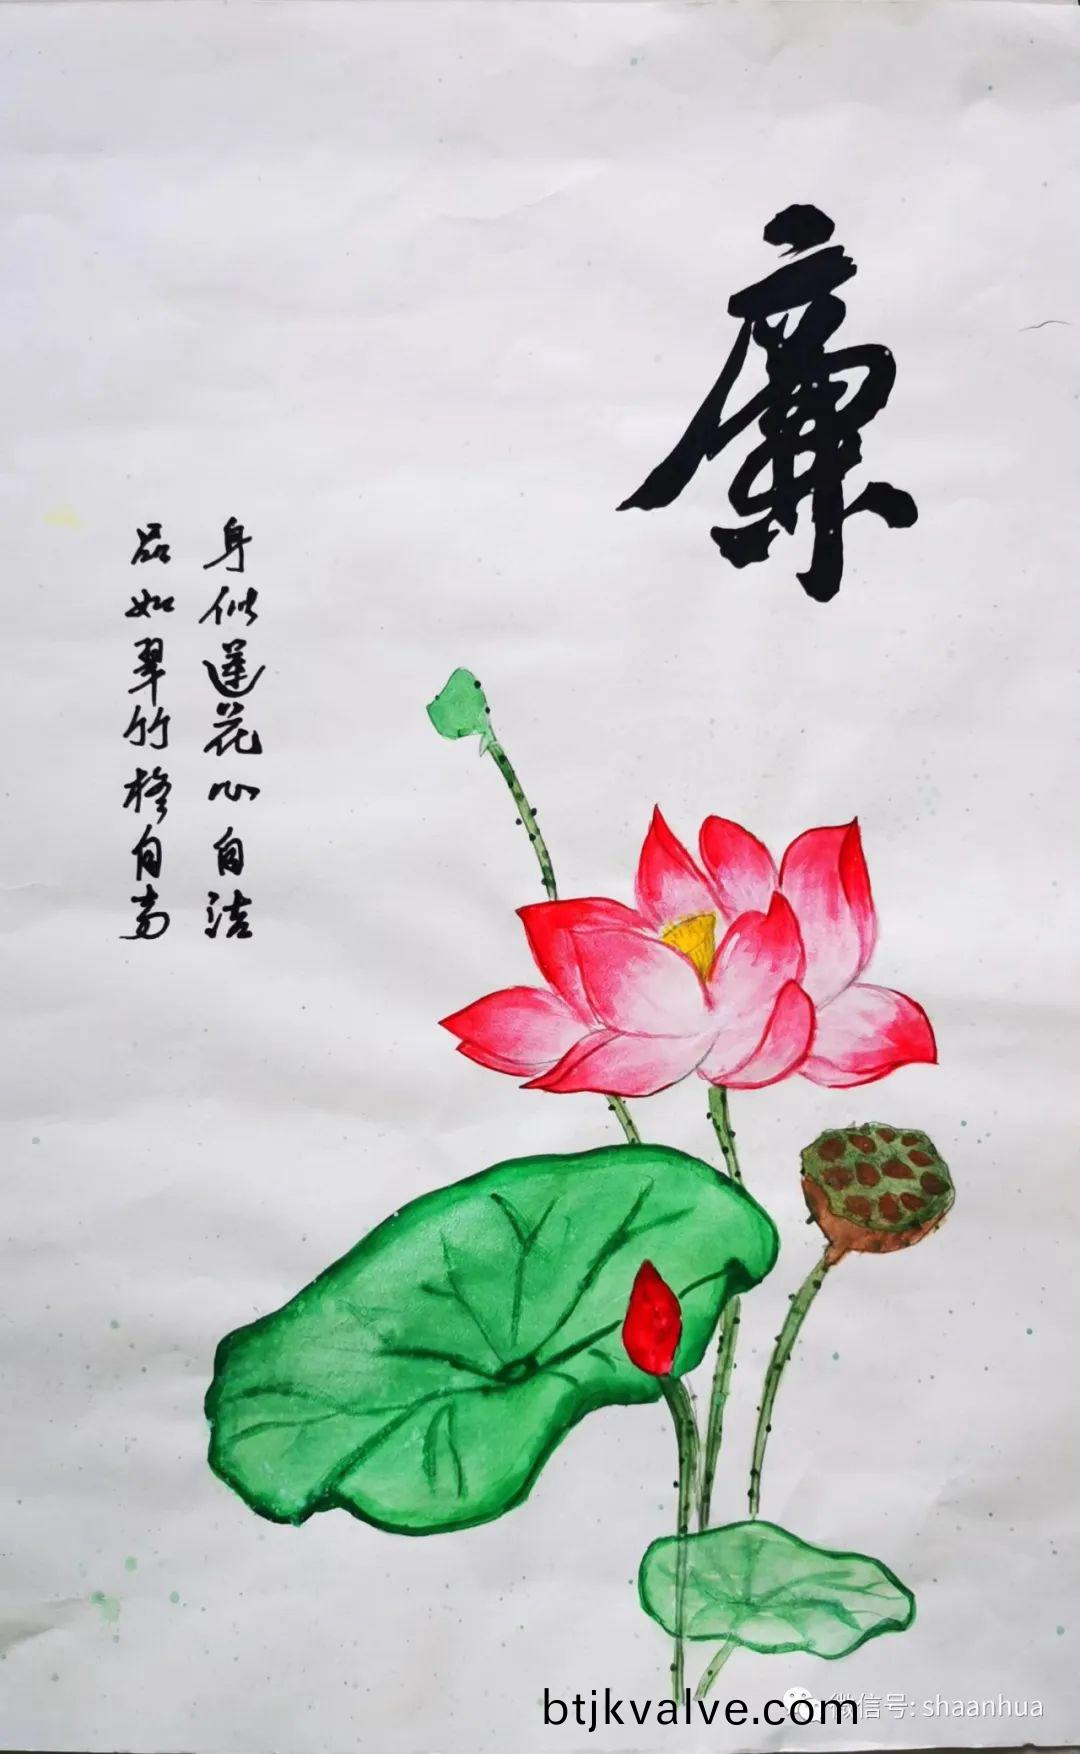 廉
身似莲花心自洁
品如翠竹格自高
btjkvalve.com
微信号: shaanhua